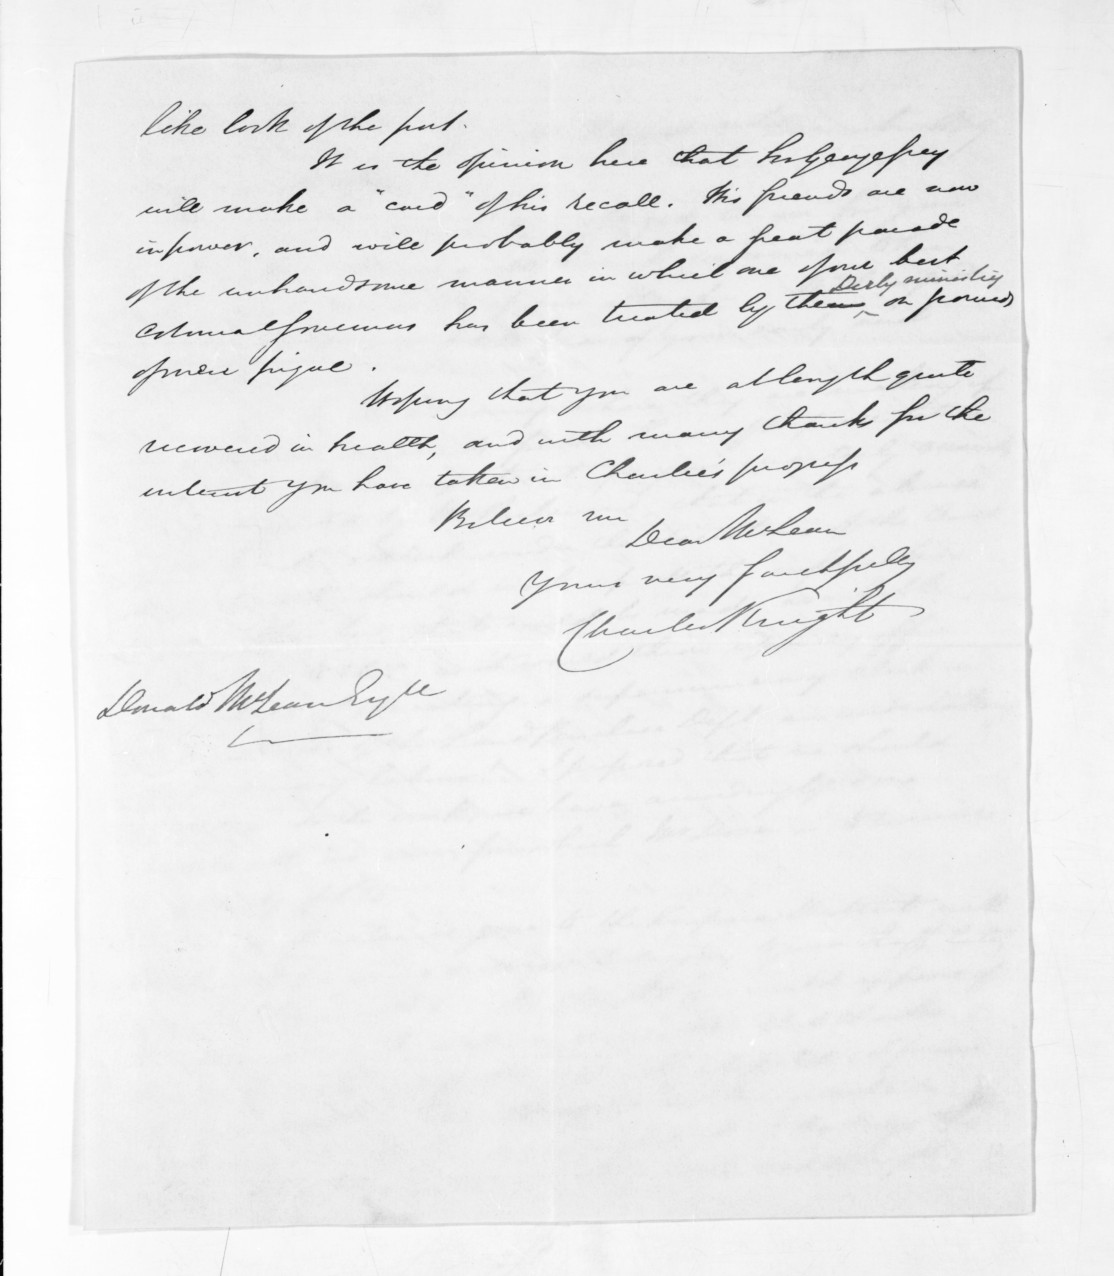 like look of the port.
It is the opinion here that Sir George Grey
will make a "card" of his recall. His friends are now
in power, and will probably make a great parade
of the unhandsome manner in which one of our best
Colonial Governors has been treated by the Derby ministry on grounds
of mere pique.
Hoping that you are at length quite
recovered in health, and with many thanks for the
interest you have taken in Charlie's progress
Believe me
Dear McLean
Yours very faithfully
Charles Knight
Donald McLean Esqre